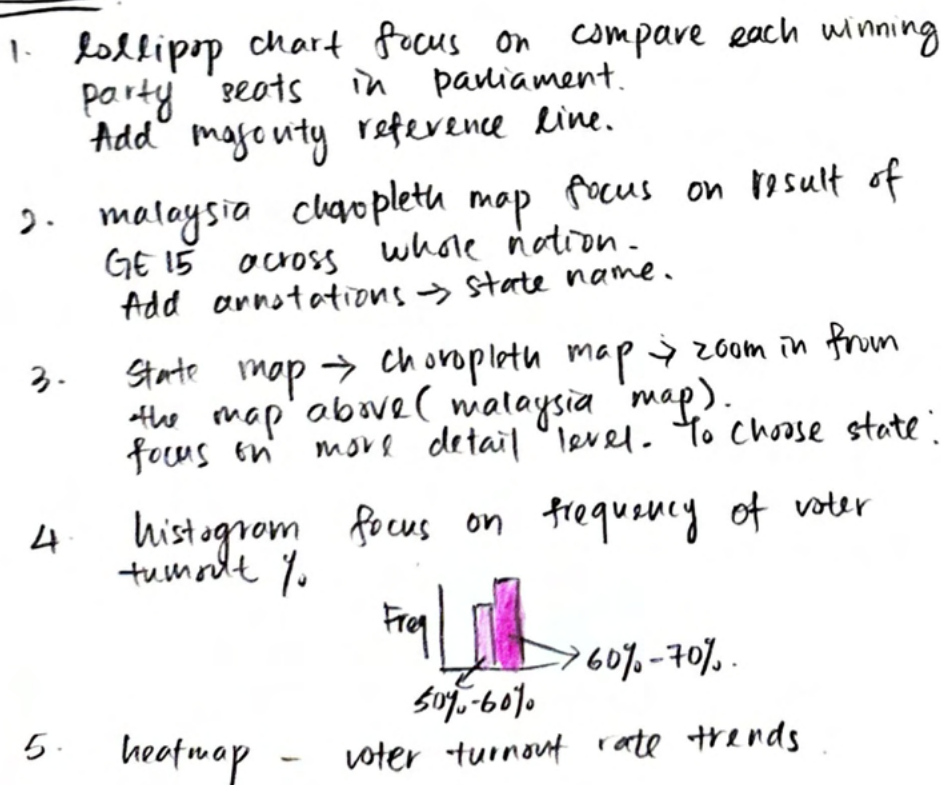 1. Lollipop chart focus on compare each winning
party seats in parliament.
Add majority reference line.
2. malaysia choropleth map focus on result of
GE 15 across whole nation.
Add annotations → state name.
3. State map → choropleth map → zoom in from
the map above (malaysia map).
focus on more detail level. To choose state.
4. histogram focus on frequency of voter
turnout %
Freq
60%-70%.
50%-60%
5. heatmap - voter turnout rate trends.